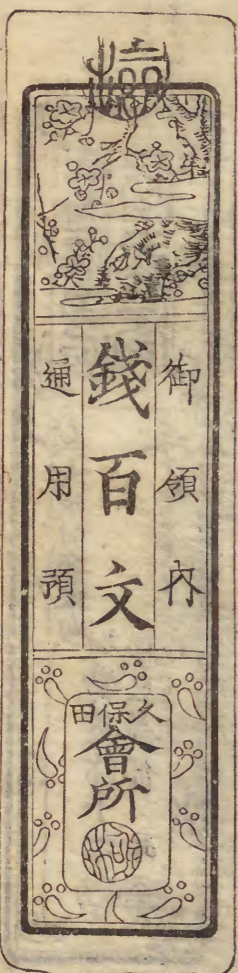 御領内
錢百文
通用預
久保田
會所